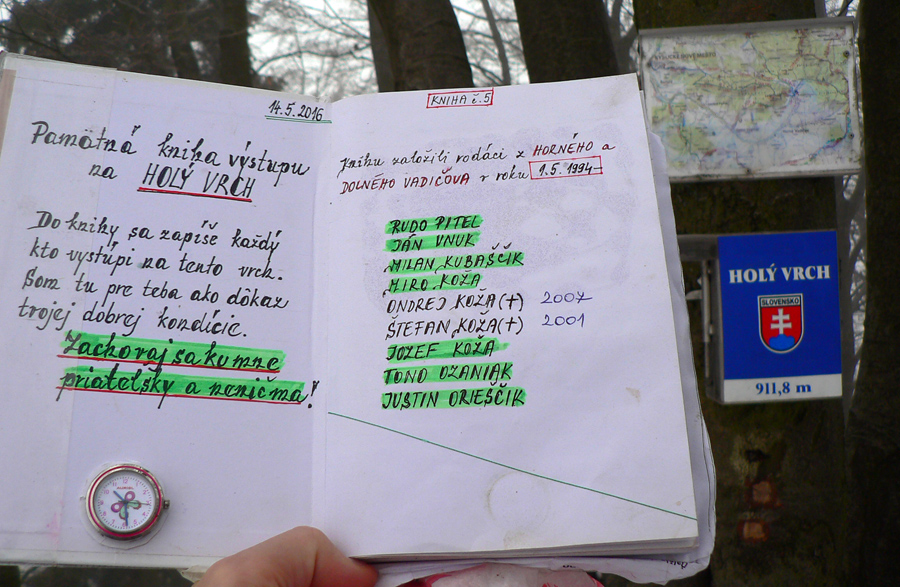 14.5.2016
Pamätná kniha výstupu
na HOLÝ VRCH
Do knihy sa zapíše každý
kto vystúpi na tento vrch.
Som tu pre teba ako dôkaz
trojej dobrej kondície.
Zachovaj sa ku mne
priateľsky a nenič ma!
KNIHA č.5
Knihu založili rodáci z HORNÉHO a
DOLNÉHO VADIČOVA v roku 1.5.1994
RUDO PITEL
JÁN VNUK
MILAN KUBAŠČIK
MIRO KOŽA
ONDREJ KOŽA(+) 2007
ŠTEFAN KOŽA(+) 2001
JOZEF KOŽA
TONO OZANIAK
JUSTIN ORIEŠČIK
HOLÝ VRCH
SLOVENSKO
911,8 m